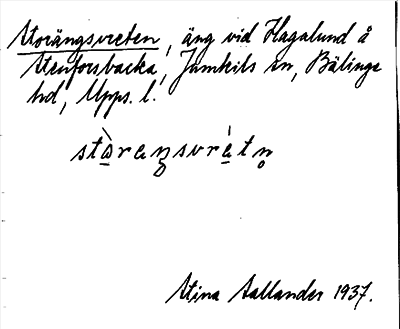 Storängsvreten, äng vid Hagalund å
Stenforsbacka, Jumkils sn, Bälinge
hd, Upps. l.
stòraŋsvrètn̥
Stina Sallander 1937.